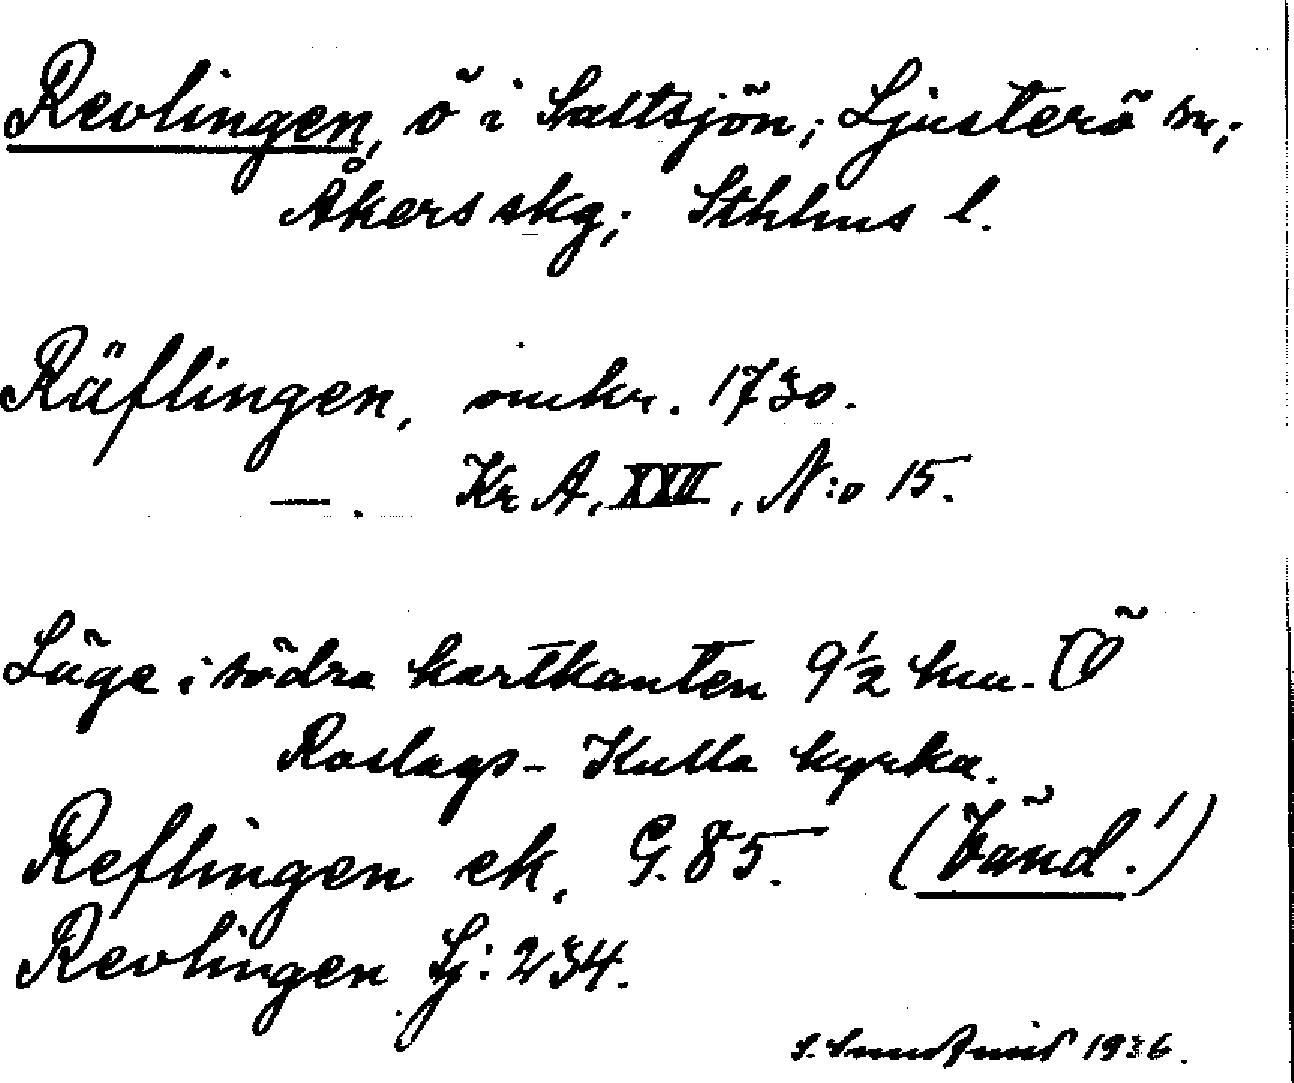 Revlingen, ö i Saltsjön; Ljusterö sn;
Åkers skg; Sthlms l.
Räflingen, omkr. 1730.
—. Kr A. XVII, N:o 15.
Läge i södra kartkanten 9½ km. Ö
Roslags-Kulla kyrka.
Reflingen ek. G. 85. (Vänd!)
Revlingen Lj: 234.
S. 1936.